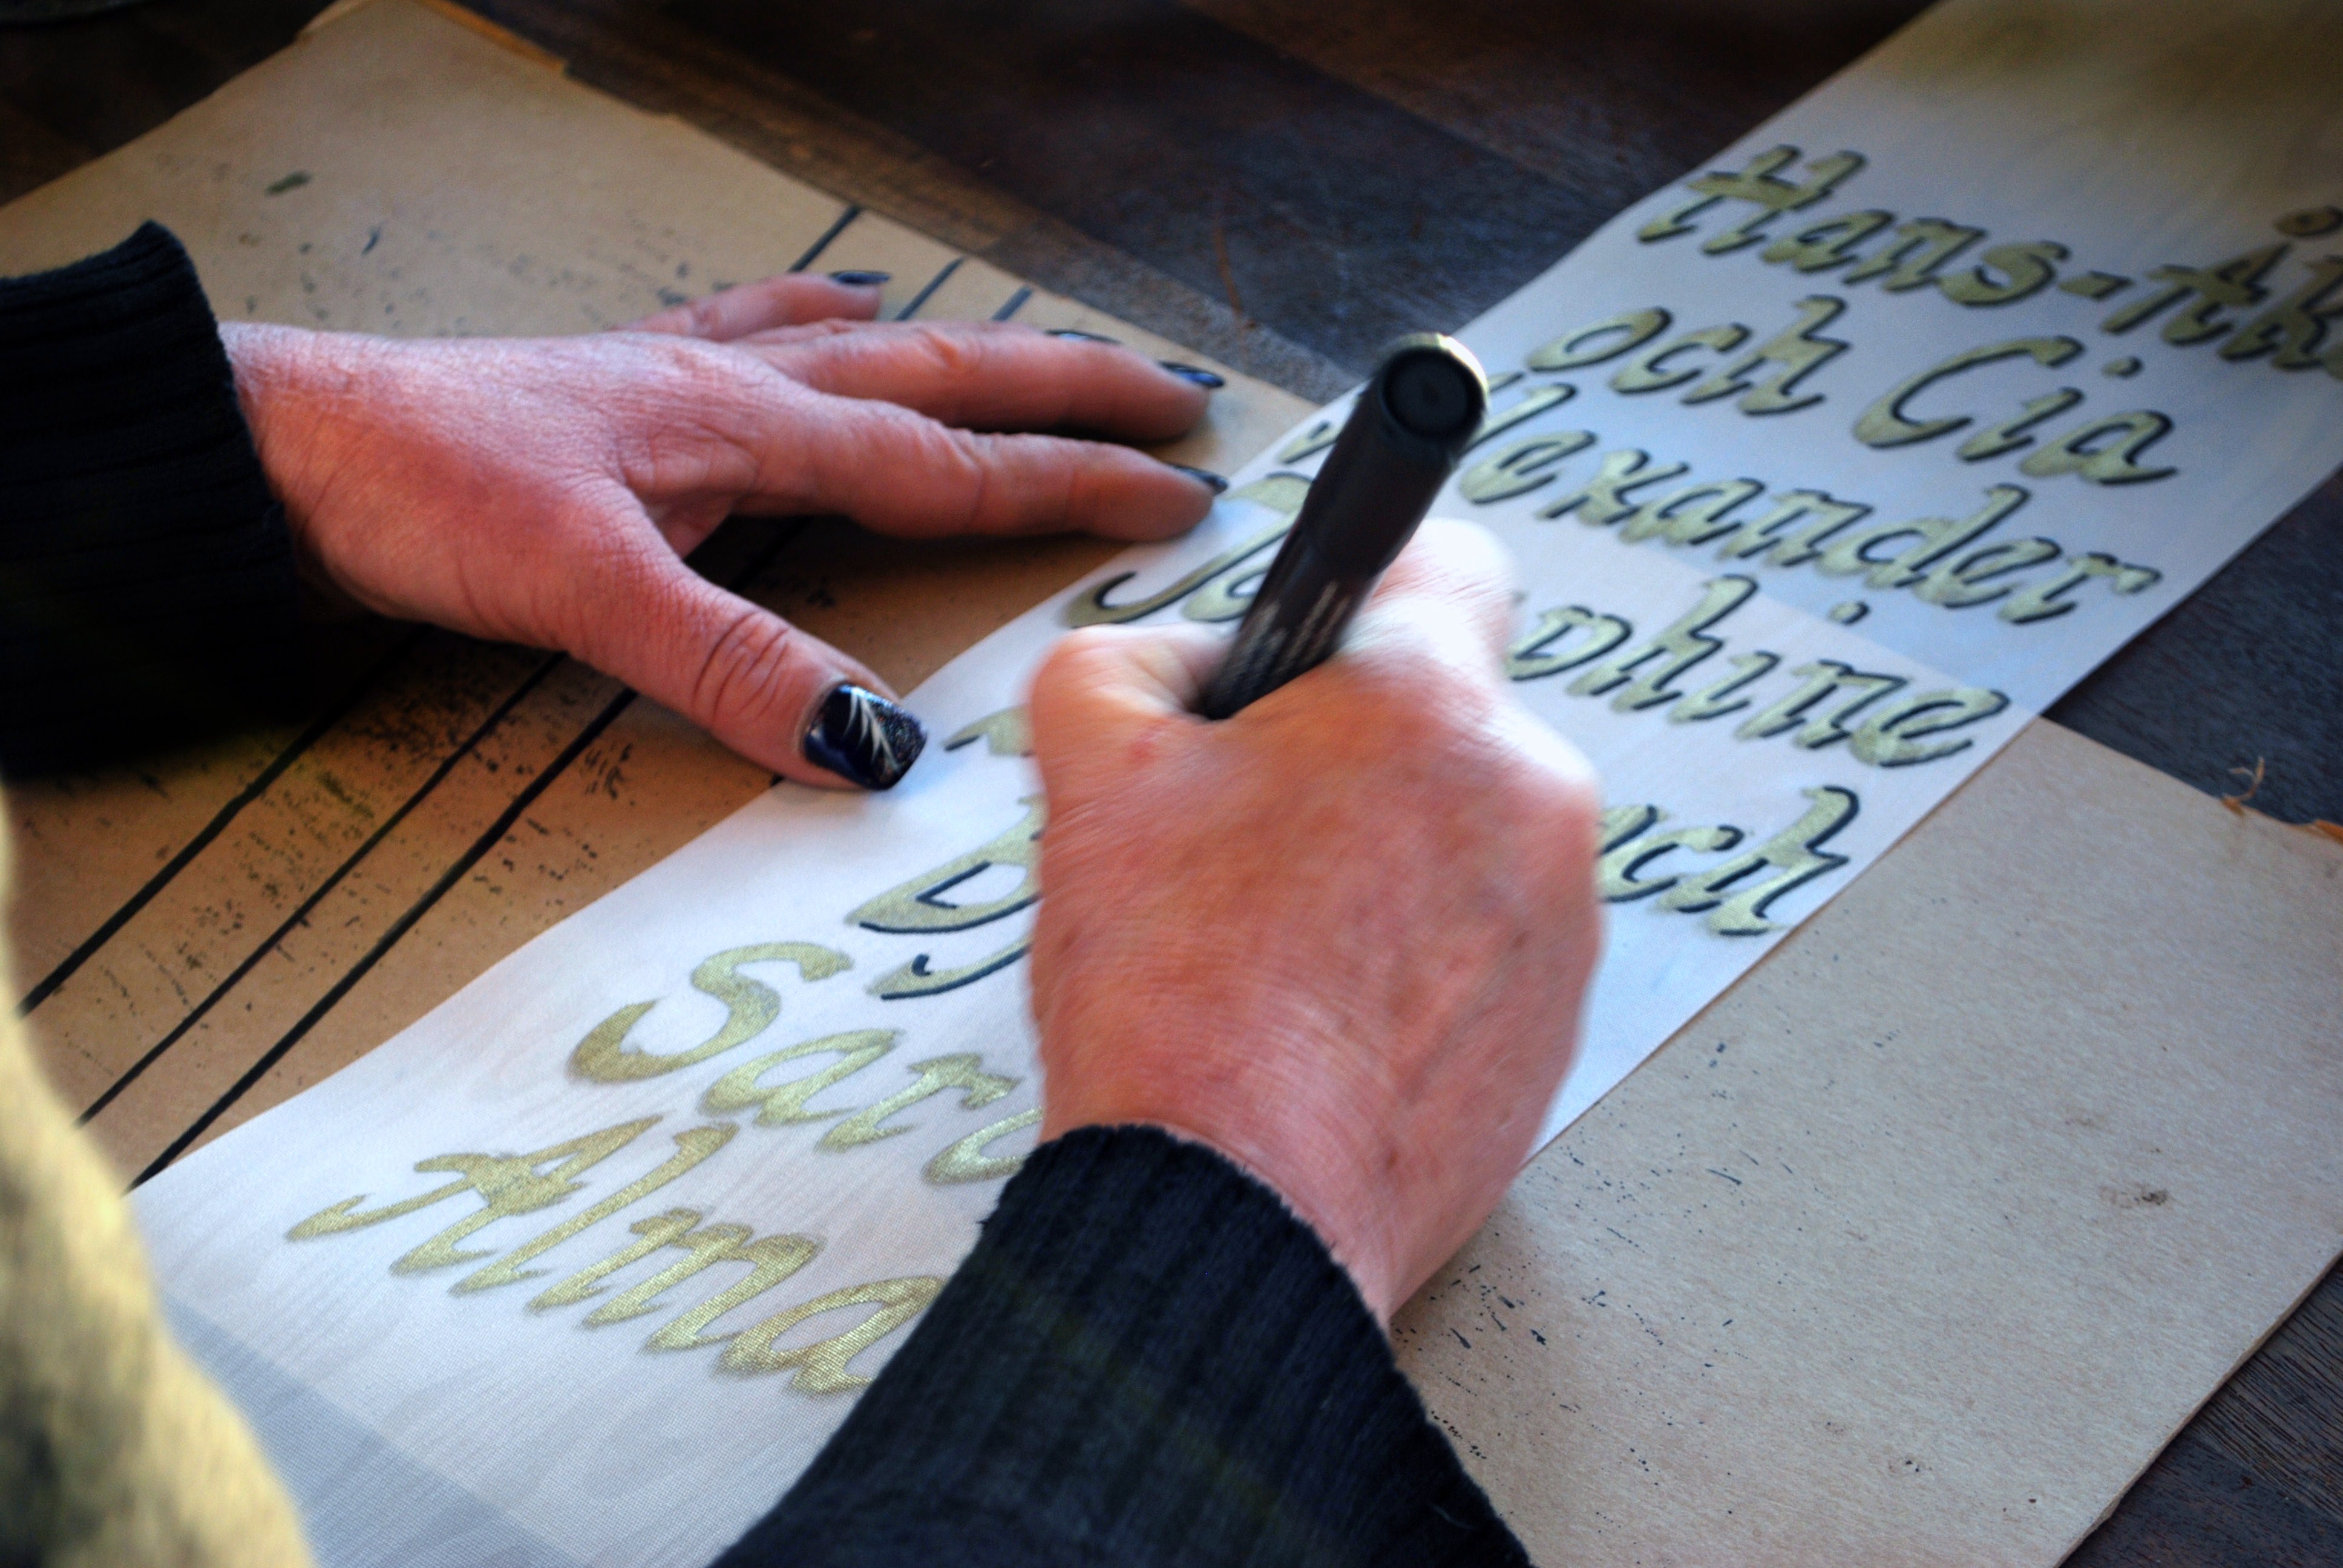 Hans-Åke
och Cia
Alexander
Josephine
och
Sara
Alma